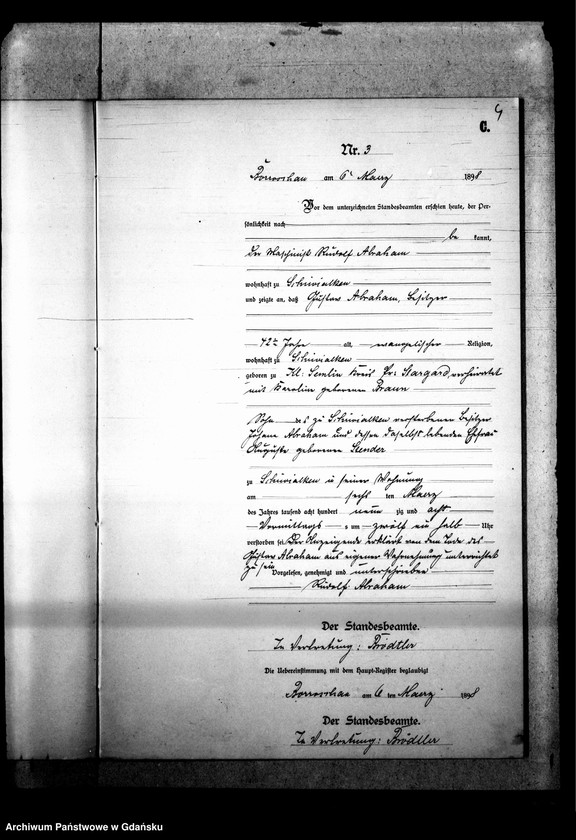 4
C.
Nr. 3
Borroschau am 6ᵗ Maerz 1898
Vor dem unterzeichneten Standesbeamten erschien heute, der Per-
sönlichkeit nach
be kannt,
der Maschinist Rudolf Abraham
wohnhaft zu Schiwialken
und zeigte an, daß Gustav Abraham, Besitzer
42 Jahre alt, evangelischer Religion,
wohnhaft zu Schiwialken
geboren zu Kl: Semlin Kreis Pr: Stargard, verheiratet
mit Karoline geborenen Braun
Sohn des zu Schiwialken verstorbenen Besitzer
Johann Abraham und dessen daselbst lebenden Ehefrau
Auguste geborenen Lender
zu Schiwialken in seiner Wohnung
am sechs ten Maerz
des Jahres tausend acht hundert neun zig und acht
Vormittags um zwölf ein halb Uhr
verstorben sei. Der Anzeigende erklärt von dem Tode des
Gustav Abraham aus eigener Wahrnehmung unterrichtet
zu sein
Vorgelesen, genehmigt und unterschrieben
Rudolf Abraham
Der Standesbeamte.
In Vertretung: Brödtler
Die Uebereinstimmung mit dem Haupt-Register beglaubigt
Borroschau am 6 ten Maerz 1898
Der Standesbeamte.
In Vertretung: Brödtler
Archiwum Państwowe w Gdańsku